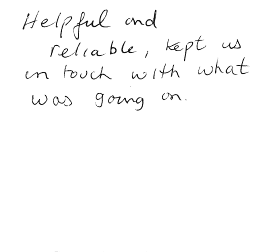 Helpful and
reliable, kept us
in touch with what
was going on.